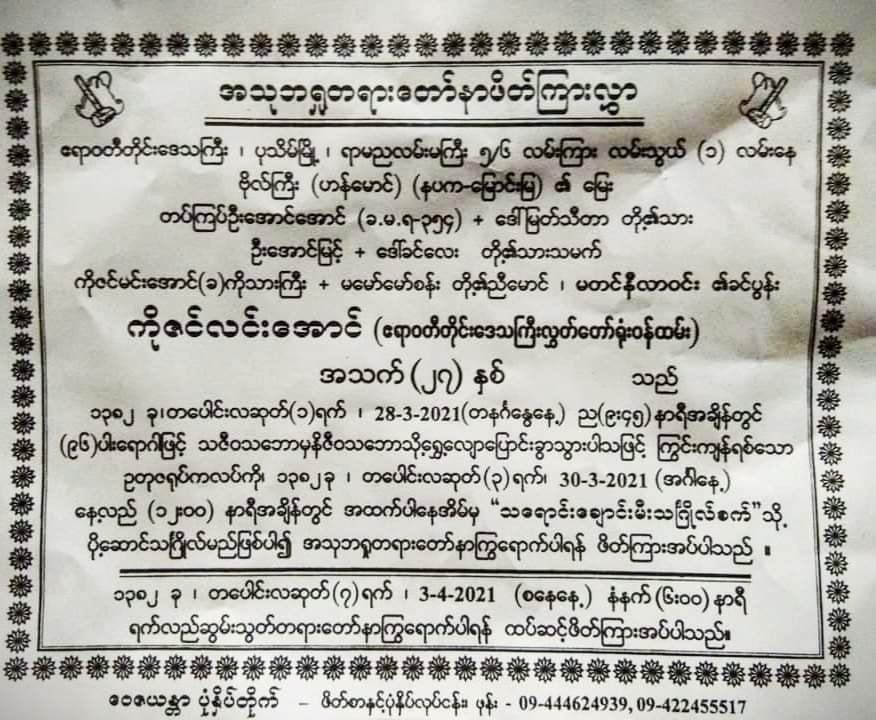 အသုဘရှုတရားတော်နာဖိတ်ကြားလွှာ
ဧရာဝတီတိုင်းဒေသကြီး ၊ ပုသိမ်မြို့ ၊ ရာမညလမ်းမကြီး ၅/၆ လမ်းကြား လမ်းသွယ် (၁) လမ်းနေ
ဗိုလ်ကြီး (ဟန်မောင်) (နပက-မြောင်းမြ) ၏ မြေး
တပ်ကြပ်ဦးအောင်အောင် (ခ.မ.ရ-၃၅၄) + ဒေါ်မြတ်သီတာ တို့၏သား
ဦးအောင်မြင့် + ဒေါ်ခင်လေး တို့၏သားသမက်
ကိုဇင်မင်းအောင်(ခ)ကိုသားကြီး + မမော်မော်စန်း တို့၏ညီမောင် ၊ မတင်နီလာဝင်း ၏ခင်ပွန်း
ကိုဇင်လင်းအောင် (ဧရာဝတီတိုင်းဒေသကြီးလွှတ်တော်ရုံးဝန်ထမ်း)
အသက် (၂၇) နှစ် သည်
၁၃၈၂ ခု၊တပေါင်းလဆုတ်(၁)ရက် ၊ 28-3-2021(တနင်္ဂနွေနေ့) ည(၉း၄၅)နာရီအချိန်တွင်
(၉၆)ပါးရောဂါဖြင့် သဇီဝသဘောမှနိဇီဝသဘောသို့ရွှေ့လျောပြောင်းခွာသွားပါသဖြင့် ကြွင်းကျန်ရစ်သော
ဥတုဇရုပ်ကလပ်ကို၊ ၁၃၈၂ခု ၊ တပေါင်းလဆုတ်(၃)ရက်၊ 30-3-2021 (အင်္ဂါနေ့)
နေ့လည် (၁၂း၀၀) နာရီအချိန်တွင် အထက်ပါနေအိမ်မှ “သရောင်းချောင်းမီးသင်္ဂြိုလ်စက်”သို့
ပို့ဆောင်သင်္ဂြိုလ်မည်ဖြစ်ပါ၍ အသုဘရှုတရားတော်နာကြွရောက်ပါရန် ဖိတ်ကြားအပ်ပါသည် ။
၁၃၈၂ ခု ၊ တပေါင်းလဆုတ်(၇)ရက် ၊ 3-4-2021 (စနေနေ့) နံနက်(၆း၀၀)နာရီ
ရက်လည်ဆွမ်းသွတ်တရားတော်နာကြွရောက်ပါရန် ထပ်ဆင့်ဖိတ်ကြားအပ်ပါသည်။
ဝေဇယန္တာ ပုံနှိပ်တိုက် – ဖိတ်စာနှင့်ပုံနှိပ်လုပ်ငန်း၊ ဖုန်း - 09-444624939, 09-422455517